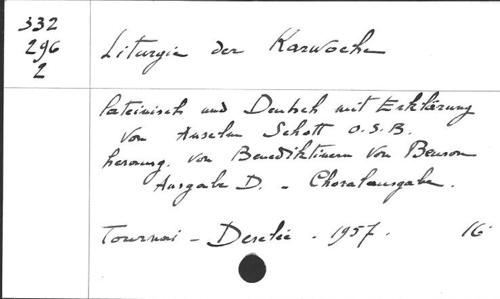 332
296
2
Liturgie der Karwoche
lateinisch und Deutsch mit Erklärung
von Anselm Schott O.S.B.
herausg. von Benediktinern von Beuron
Ausgabe D. - Choralausgabe.
Tournai - Desclée - 1957. 16°